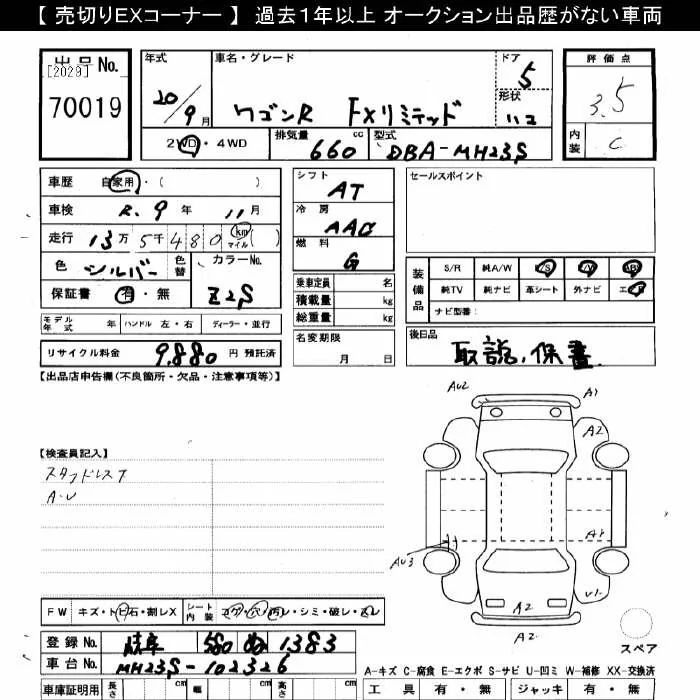 【 売切りEXコーナー 】 過去1年以上 オークション出品歴がない車両
出品No.
[2029]
70019
年式 20/9月
車名・グレード ワゴンR FXリミテッド
ドア 5
形状 ハコ
評価点 3.5
内装 C
2WD・4WD
排気量 660 cc
型式 DBA-MH23S
車歴 自家用・( )
車検 R.9年 11月
走行 13万5千480 km マイル ( )
色 シルバー 色替
カラーNo. Z2S
保証書 有・無
シフト AT
冷房 AAC
燃料 G
乗車定員 名
積載量 kg
総重量 kg
名変期限 月 日
セールスポイント
装備品
S/R 純A/W P/S P/W ABS
純TV 純ナビ 革シート 外ナビ エアB
ナビ型番:
モデル年式 年 ハンドル 左・右 ディーラー・並行
リサイクル料金 9,880 円 預託済
後日品 取説、保書
【出品店申告欄(不良箇所・欠品・注意事項等)】
【検査員記入】
スタッドレス7
A・U
AU2 A1
A2
A1
AU3
U1
A2
A2
スペア
FW キズ・ト ビ石・割レX シート内装 コゲ・穴・汚レ・シミ・破レ・スレ
登録No. 岐阜 580 ぬ 1383
車台No. MH23S-102326
A-キズ C-腐食 E-エクボ S-サビ U-凹ミ W-補修 XX-交換済
車庫証明用 長さ cm 幅 cm 高さ cm
工具 有・無 ジャッキ 有・無